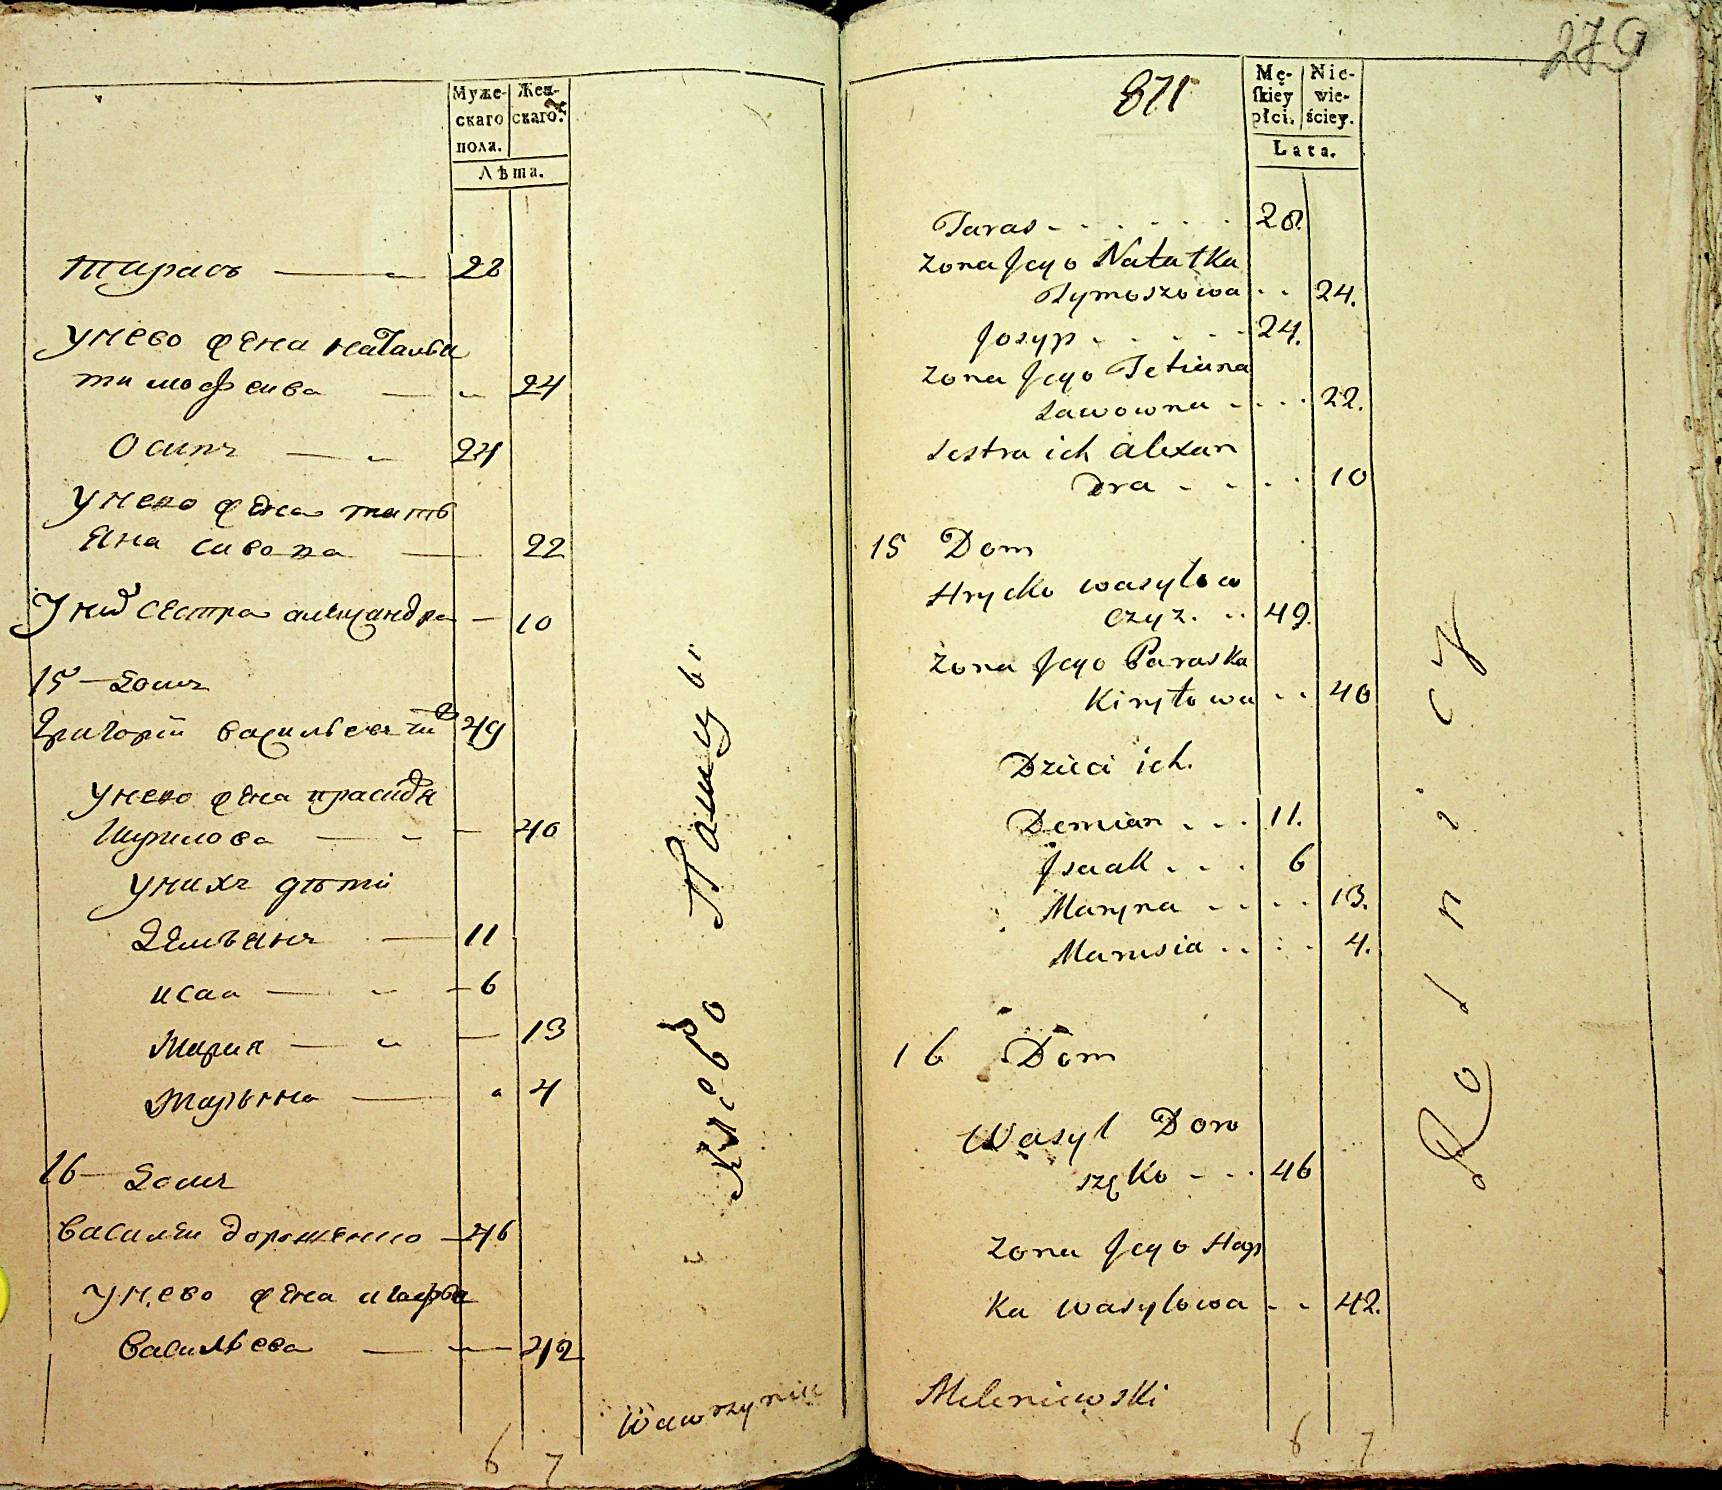 Муже- Жен-
скаго скаго.
пола.
Лѣта.
Тарасъ 28
у него жена наталья
тимофеива 24
Осипъ 24
у него жена тать
яна савова 22
У них сестра александра 10
15 Домъ
Григорій васильевъ чиж 49
у него жена праскидя
кирилова 40
у нихъ дѣти
Демьянъ 11
исак 6
Мария 13
Марьяна 4
16 Домъ
василеи дорошенко 46
у него жена агафья
васильева 42
Хлебо Пашцы
Wawrzyniec
6 7
279
871
Mę- Nie-
skiey wie-
płci. ściey.
Lata.
Taras 28.
żona Jego Natałka
Tymoszowa 24.
Josyp 24.
żona Jego Tetiana
Sawowna 22.
siestra ich alexan
Dra 10
15 Dom
Hrycko wasylow
Czyz. 49.
żona Jego Paraska
Kiryłowa 40
Dzieci ich.
Demian 11.
Jsaak 6
Maryna 13.
Marusia 4.
16 Dom
Wasyl Doro
szęko 46
żona Jego Hap
ka wasylowa 42.
Rolnicy
Meleniewski
6 7